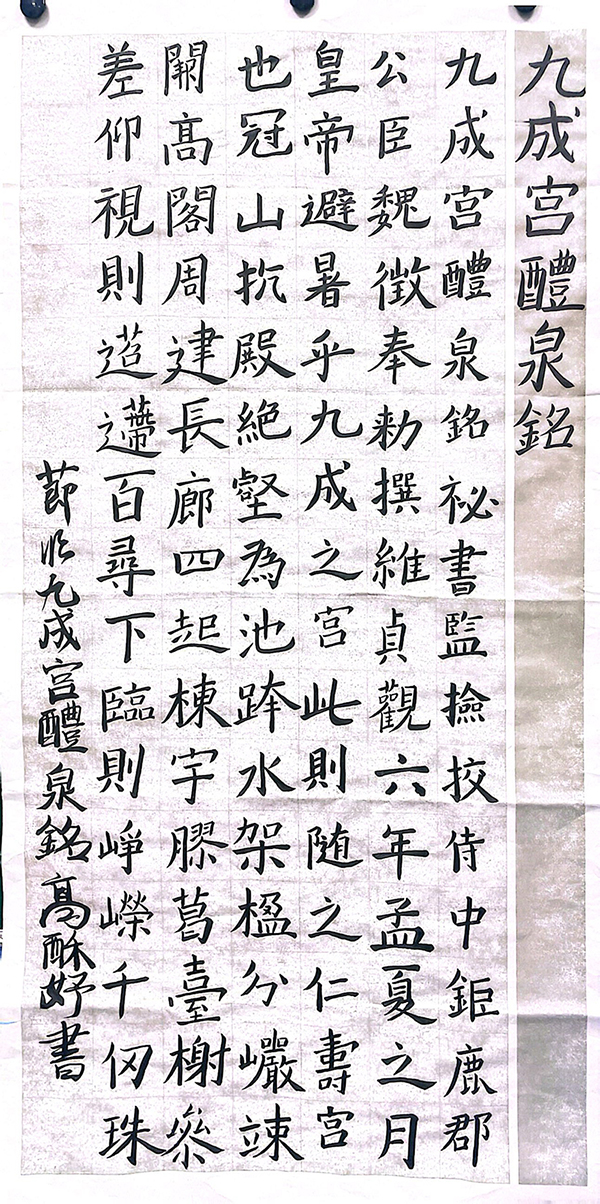 九成宫醴泉銘
九成宫醴泉銘祕書監撿挍侍中鉅鹿郡
公臣魏徵奉勑撰維貞觀六年孟夏之月
皇帝避暑乎九成之宫此則随之仁壽宫
也冠山抗殿絶壑為池跨水架楹分巗竦
闕高閣周建長廊四起棟宇膠葛臺榭叅
差仰視則迢遰百尋下臨則崢嶸千仞珠
節临九成宫醴泉銘高酥妤書